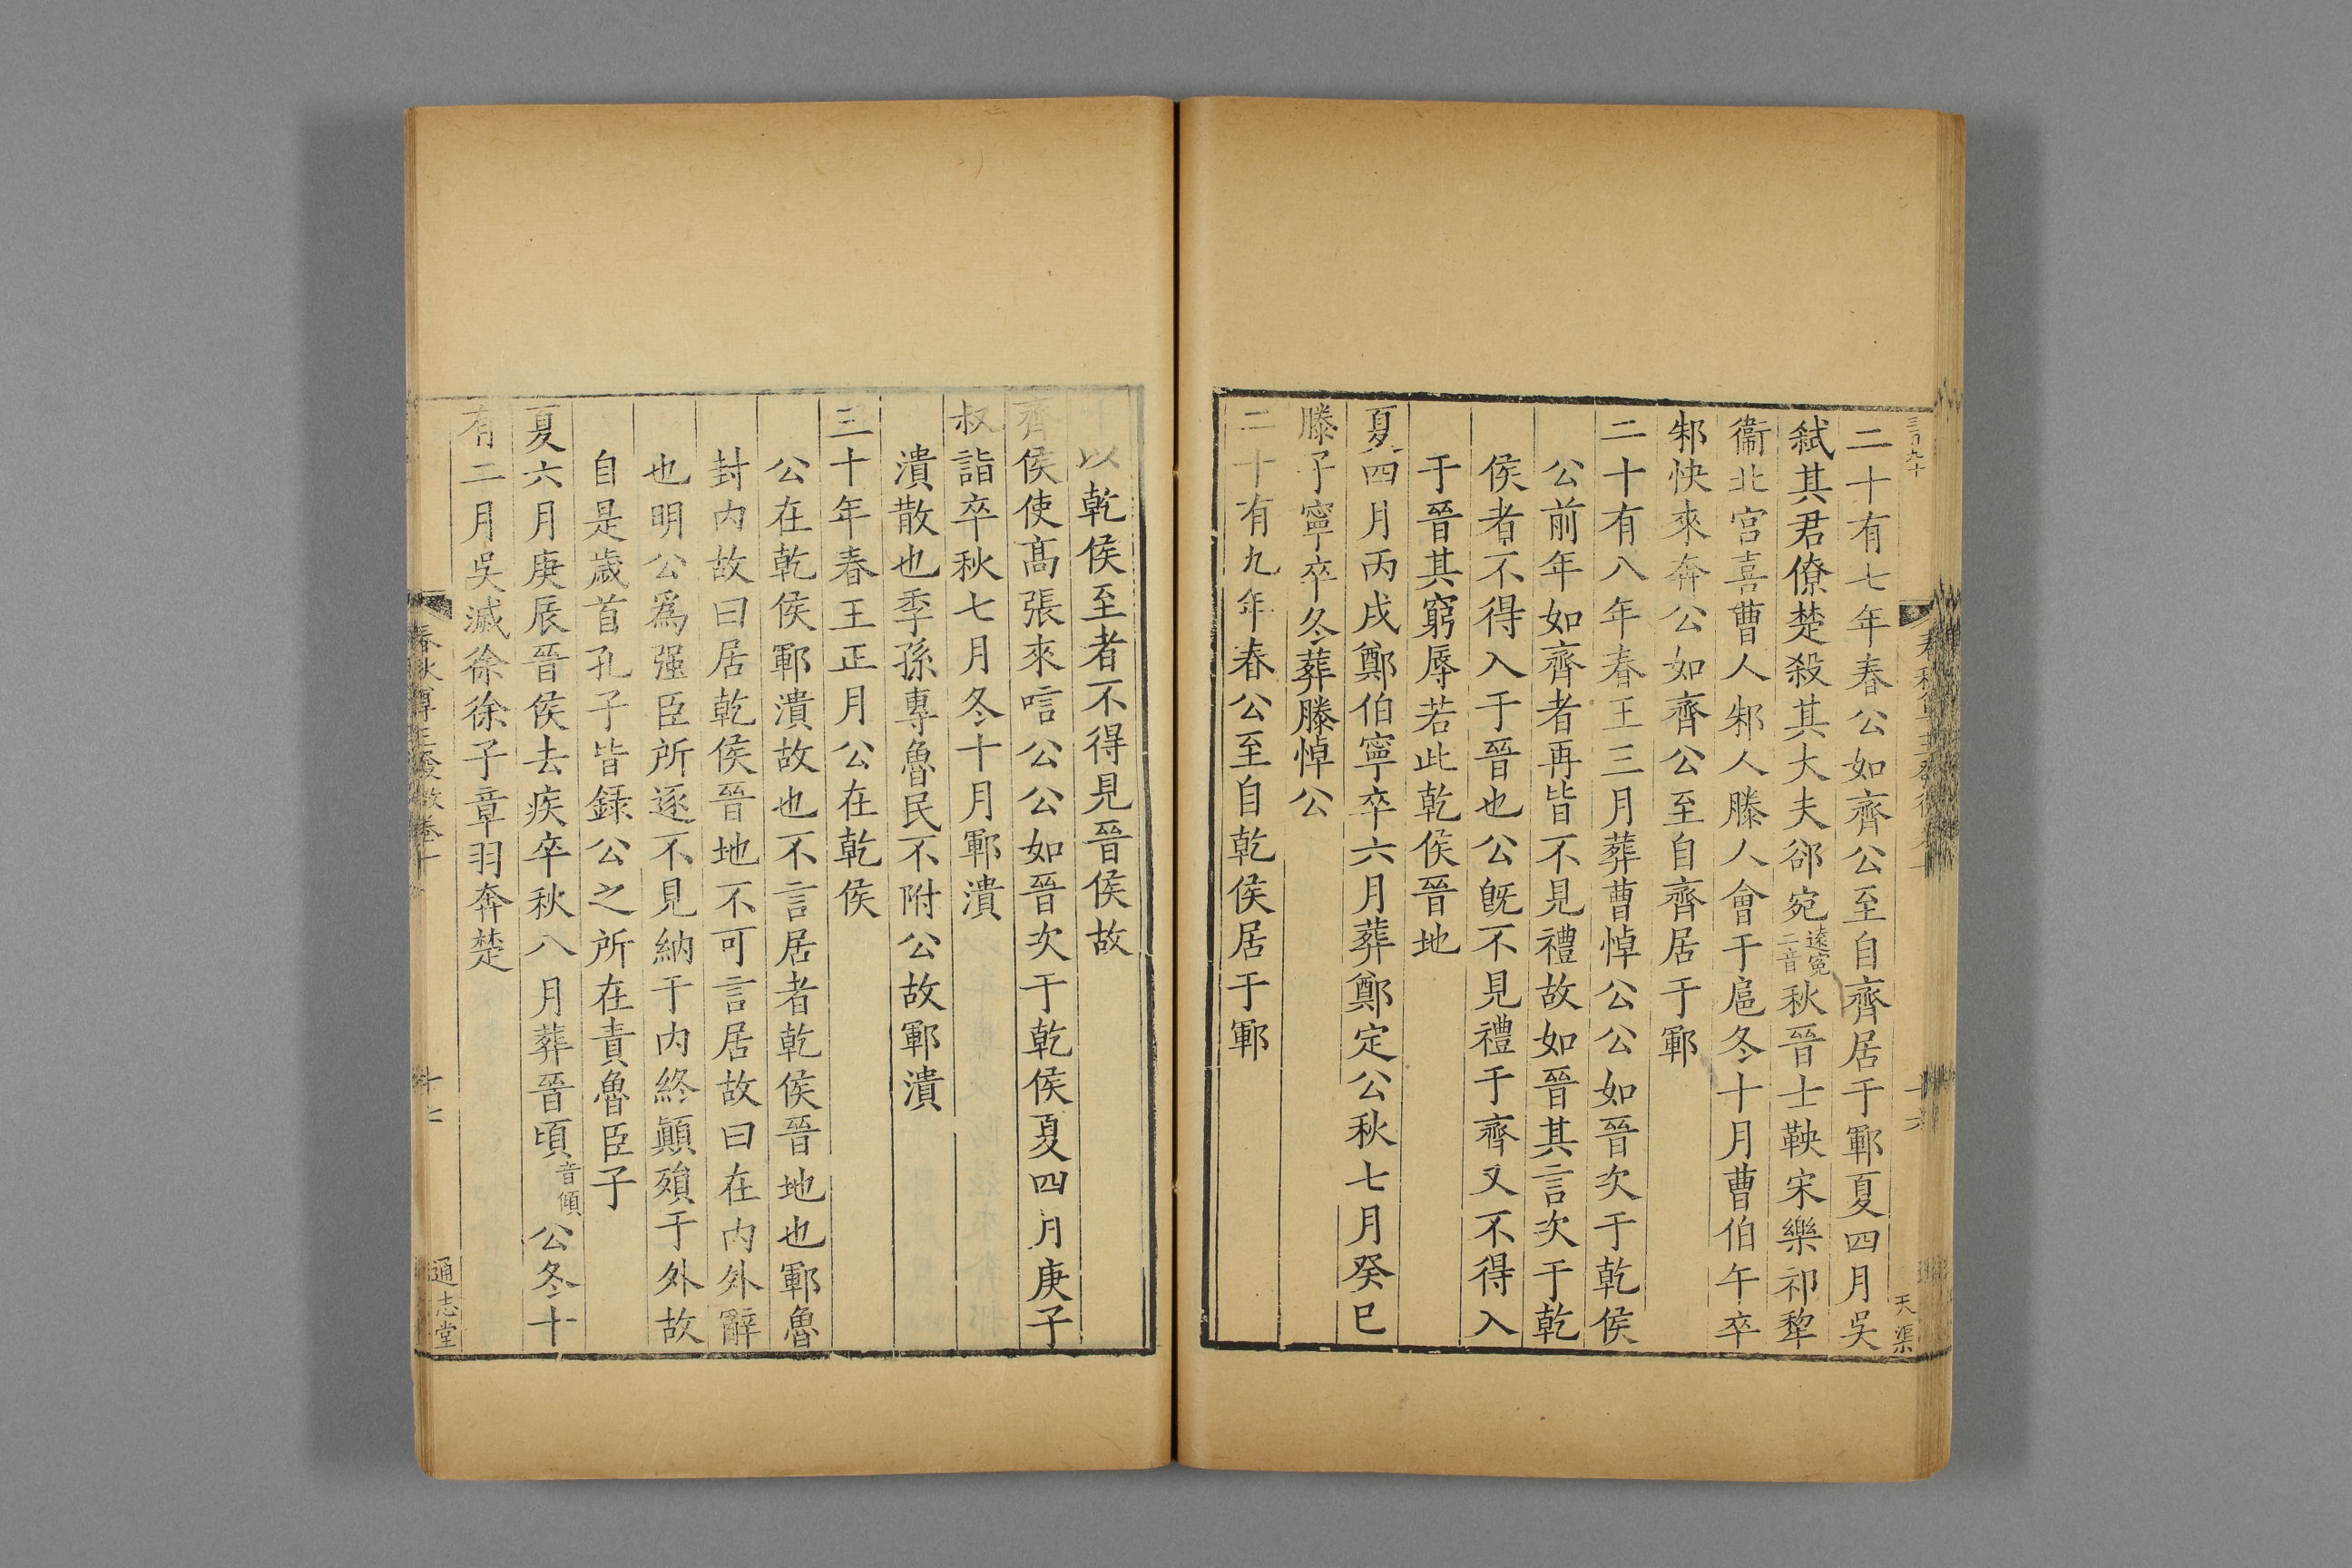 二十有七年春公如齊公至自齊居于鄆夏四月吳
弑其君僚楚殺其大夫郤宛遠寃二音秋晉士鞅宋樂祁犂
衞北宫喜曹人邾人滕人會于扈冬十月曹伯午卒
邾快來奔公如齊公至自齊居于鄆
二十有八年春王三月葬曹悼公公如晉次于乾侯
公前年如齊者再皆不見禮故如晉其言次于乾
侯者不得入于晉也公旣不見禮于齊又不得入
于晉其窮辱若此乾侯晉地
夏四月丙戌鄭伯寧卒六月葬鄭定公秋七月癸巳
滕子寧卒冬葬滕悼公
二十有九年春公至自乾侯居于鄆
以乾侯至者不得見晉侯故
齊侯使髙張來唁公公如晉次于乾侯夏四月庚子
叔詣卒秋七月冬十月鄆潰
潰散也季孫專魯民不附公故鄆潰
三十年春王正月公在乾侯
公在乾侯鄆潰故也不言居者乾侯晉地也鄆魯
封内故曰居乾侯晉地不可言居故曰在内外辭
也明公爲强臣所逐不見納于内終顚殞于外故
自是歲首孔子皆録公之所在責魯臣子
夏六月庚辰晉侯去疾卒秋八月葬晉頃音傾公冬十
有二月吳滅徐徐子章羽奔楚
通志堂